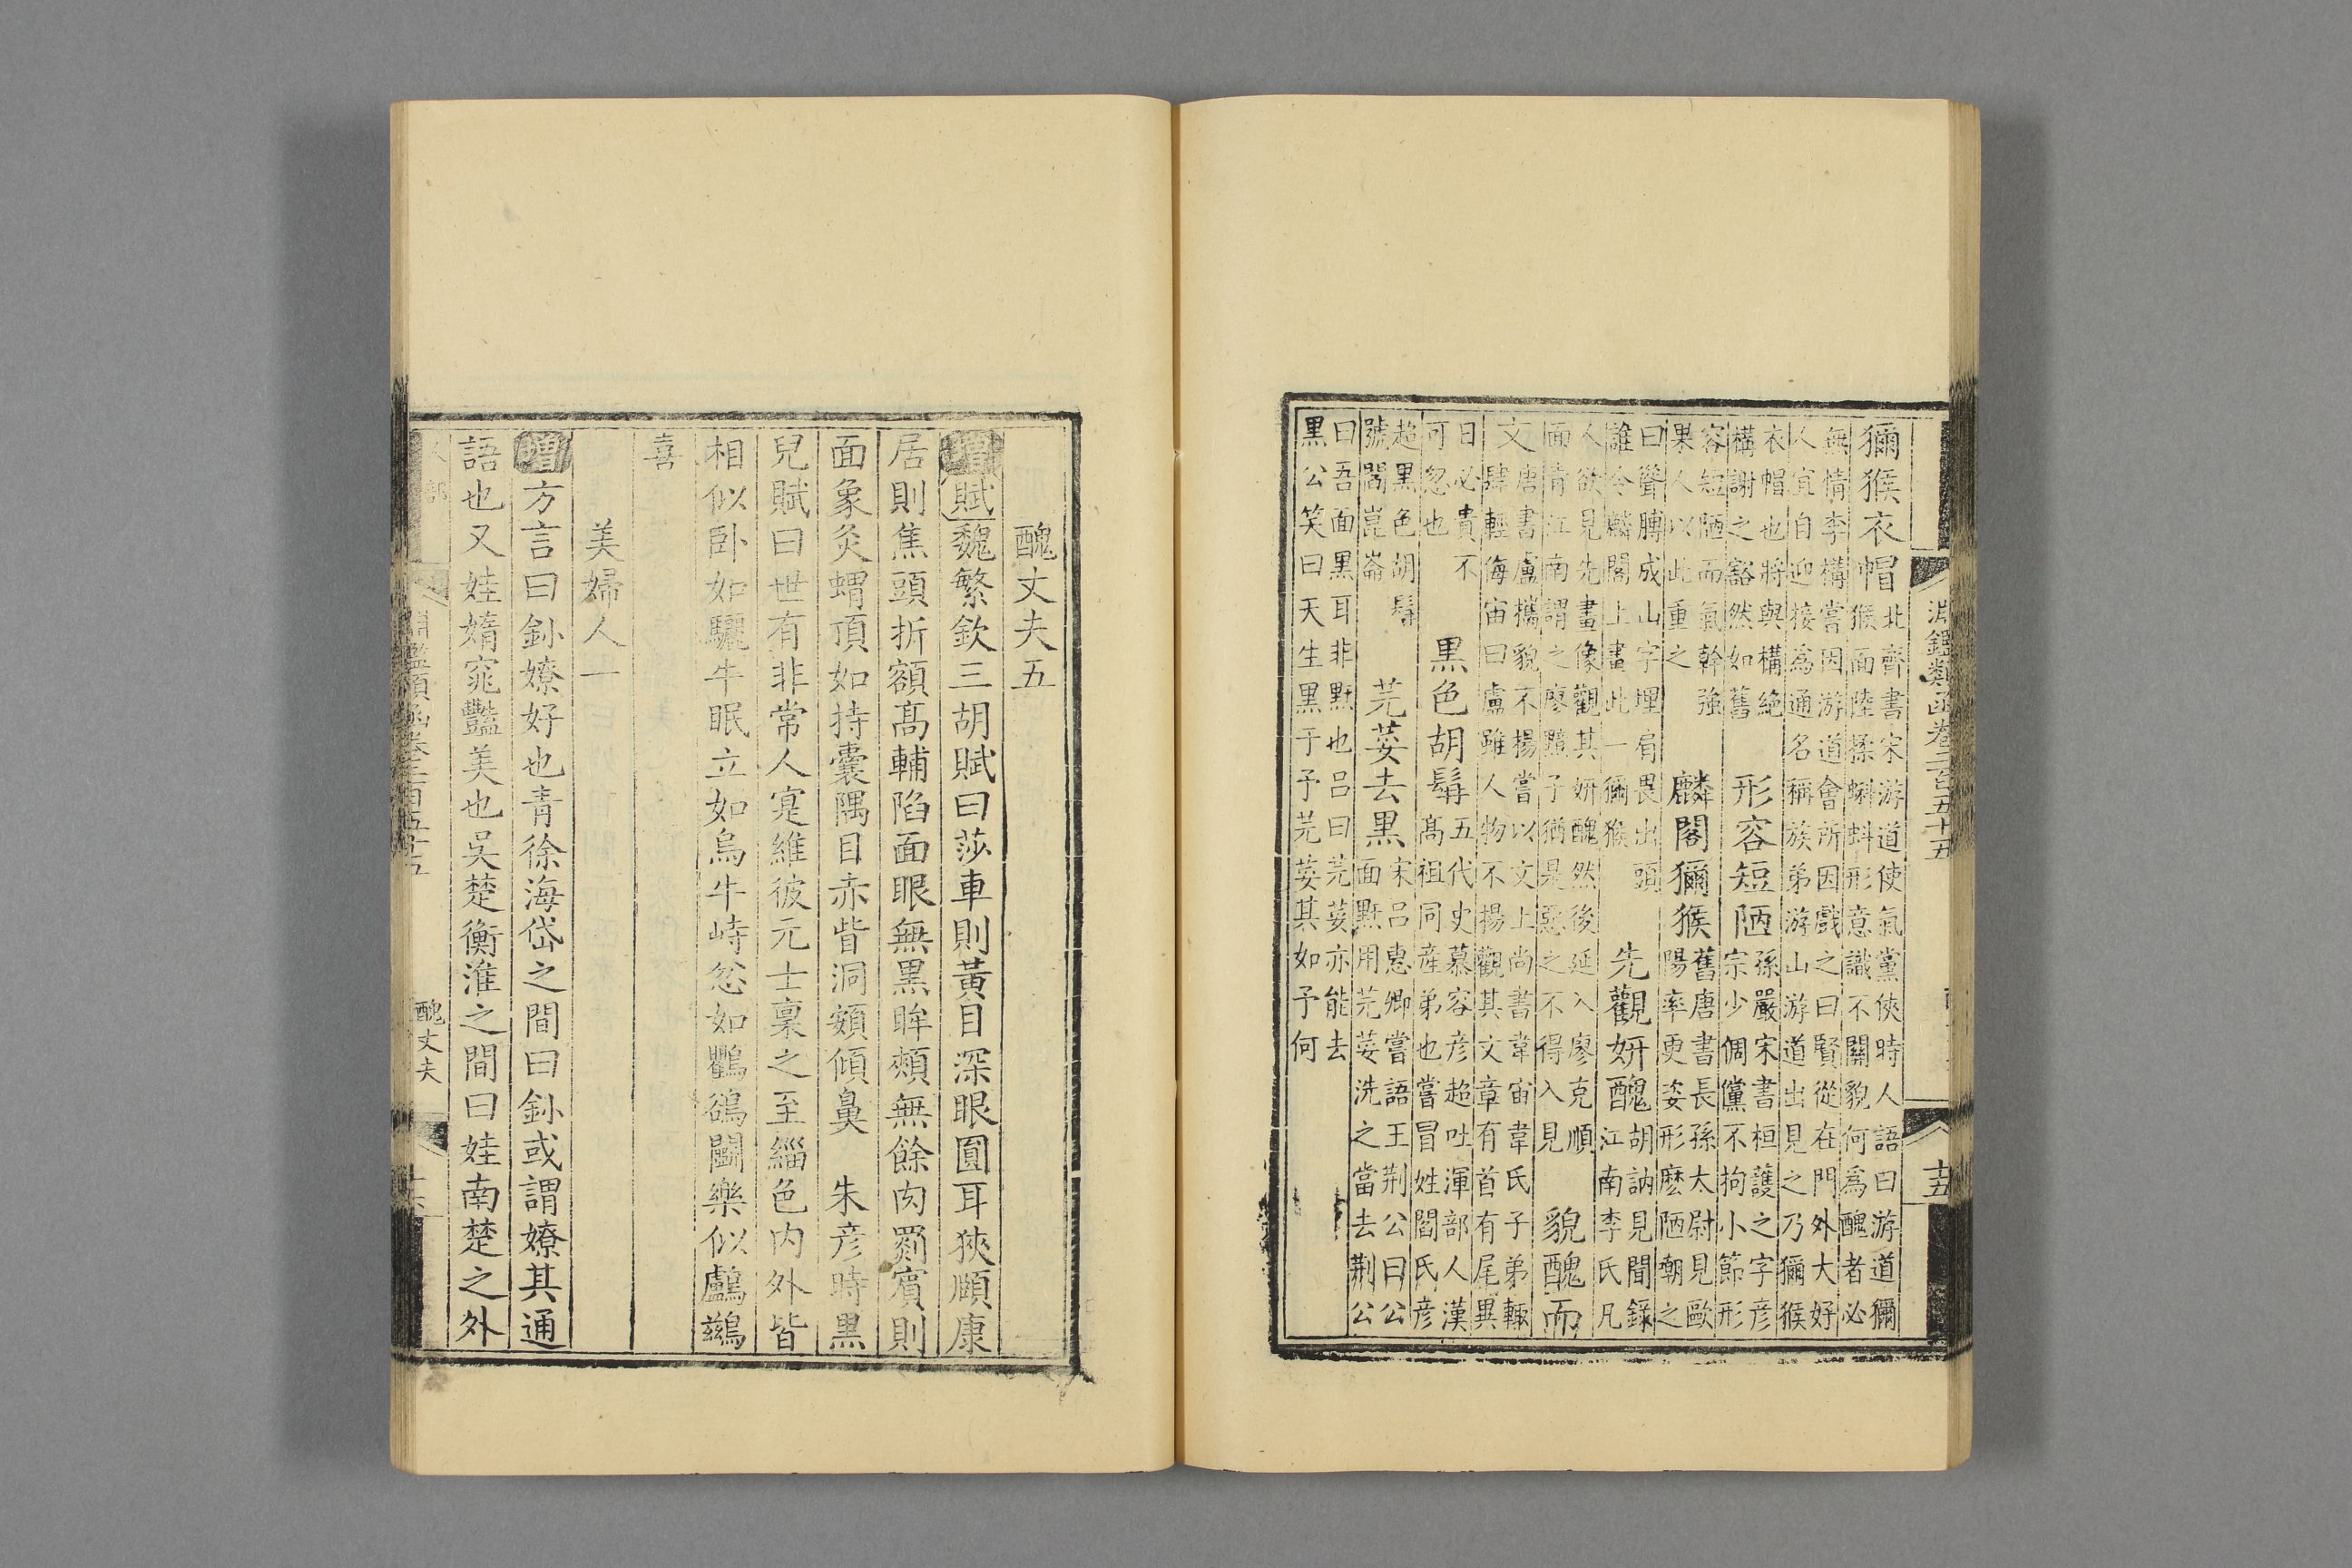 淵鑑類函卷二百五十五
十五
獼猴衣帽
北齊書宋游道使氣黨俠時人語曰游道獼
猴面陸操蝌蚪形意識不關貌何為醜者必
無情李構嘗因游道會所因戲之曰賢從在門外大好
人宜自迎接為通名稱族弟游山游道出見之乃獼猴
衣帽也將與構絕
構謝之豁然如舊
形容短陋
孫嚴宋書桓護之字彦
宗少倜儻不拘小節形
容短陋而氣幹強
果人以此重之
麟閣獼猴
舊唐書長孫太尉見歐
陽率更姿形麽陋嘲之
曰聳膊成山字埋肩畏出頭
誰令麟閣上畫此一獼猴
先觀妍醜
胡訥見聞錄
江南李氏凡
人欲見先畫像觀其妍醜然後延入廖克順
面青江南謂之廖黯子猶是惡之不得入見
貌醜而
文
唐書盧攜貌不揚嘗以文上尚書韋宙韋氏子弟輙
肆輕侮宙曰盧雖人物不揚觀其文章有首有尾異
日必貴不
可忽也
黑色胡髯
五代史慕容彦超吐渾部人漢
高祖同産弟也嘗冒姓閻氏彦
超黑色胡髯
號閻崑崙
芫荽去黑
宋呂惠卿嘗語王荆公曰公
面䵟用芫荽洗之當去荆公
曰吾面黑耳非䵟也呂曰芫荽亦能去
黑公笑曰天生黑于予芫荽其如予何
醜丈夫五
增賦魏繁欽三胡賦曰莎車則黃目深眼圓耳狹頤康
居則焦頭折額髙輔陷面眼無黑眸頰無餘肉罽賓則
面象炙蝟頂如持囊隅目赤眥洞頞傾鼻 朱彦時黑
兒賦曰世有非常人寔維彼元士稟之至緇色內外皆
相似卧如驪牛眠立如烏牛峙忿如鸜鵒鬭樂似鸕鷀
喜
美婦人一
增方言曰釥嫽好也青徐海岱之間曰釥或謂嫽其通
語也又娃媠窕豔美也吳楚衡淮之間曰娃南楚之外
淵鑑類函卷二百五十五
醜丈夫
十六